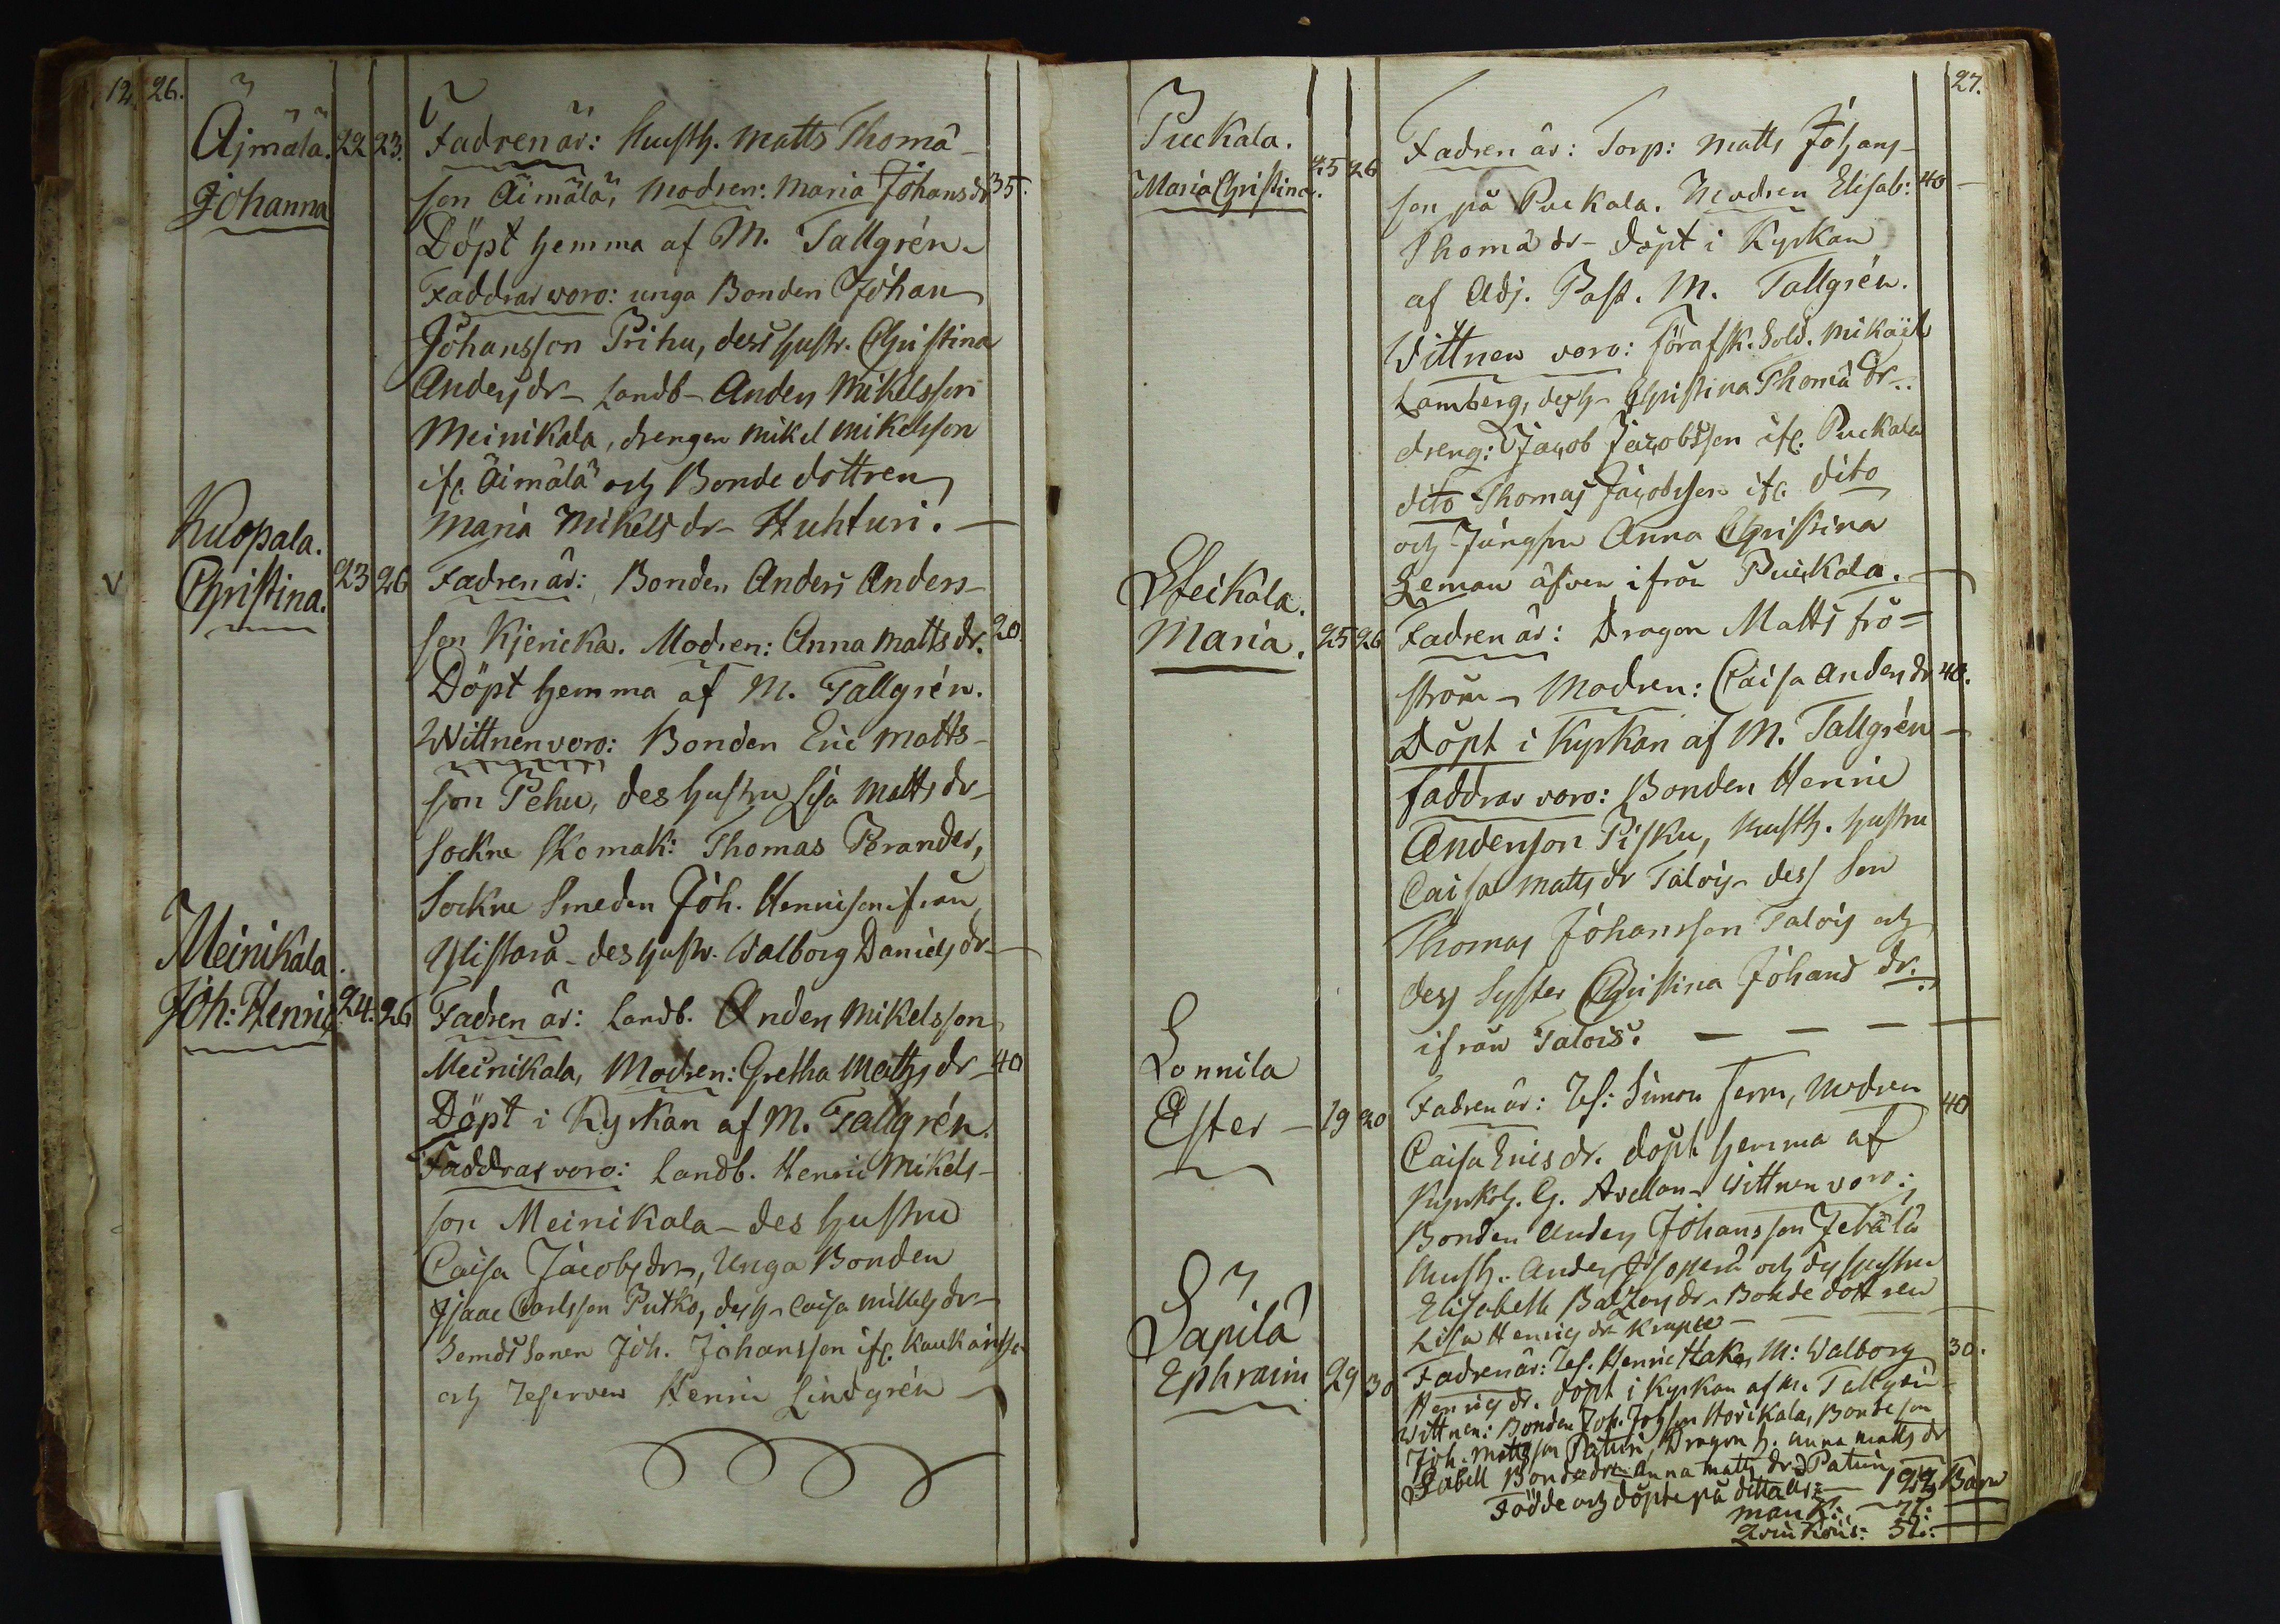 12. 26.
Äjmälä. 22 23. Fadren är: Husth. Matts Thomæ-
Johanna son Äimälä, Modren: Maria Johans dr 35.
Döpt hemma af M. Tallgrén.
Faddrar voro: unga Bonden Johan
Johansson Prihu, dess hustr. Christina
Anders dr - Landb - Anders Mikelsson
Meinikala, drengen Mikel Mikelsson
ifr. Äimälä och Bonde dottren
Maria Mikels dr - Huhturi. -
Kuopala.
V Christina. 23 26 Fadren är: Bonden Anders Anders-
son Kjericka. Modren: Anna Matts dr. 20.
Döpt hemma af M. Tallgrén.
Wittnen voro: Bonden Eric Matts-
son Pehu, des hustru Lisa Matts dr -
Sockne Skomak: Thomas Brander,
Sockne Smeden Joh. Henricson ifrån
Ylistarå - des hustr. Walborg Daniels dr -
Meinikala.
Joh: Henric 24. 26 Fadren är: Landb. Anders Mikelsson
Meinikala, Modren: Gretha Matts dr - 40
Döpt i Kyrkan af M. Tallgrén.
Faddrar voro: Landb. Henric Mikels-
son Meinikala - des hustru
Caisa Jacobs dr, Unga Bonden
Isaac Carlsson Putko, des h - Caisa Mikels dr -
Joh. Johansson ifr.
och Reserven Henric Lindgrén -
27.
Puckala.
Maria Christina. 25 26 Fadren är: Torp: Matts Johans-
son på Puckala. Modren Elisab: 40 -
Thomæ dr - döpt i Kyrkan
af Adj. Past. M. Tallgrén.
Wittnen voro: förafsk. Sold. Mikäel
Lamberg, des h - Christina Thomæ dr -
dreng: Jacob Jacobsson ifr. Puckala
dito Thomas Jacobsson ifr. dito
och Jungfru Anna Christina
Zeman äfven ifrån Puckala. -
Steikala.
Maria. 25 26 Fadren är: Dragon Matts frö=
ström - Modren: Caisa Anders dr 40.
Döpt i Kyrkan af M. Tallgrén -
faddrar voro: Bonden Henric
Andersson Pisku, Husth. hustru
Caisa Matts dr Talois - dess Son
Thomas Johansson Talois och
dess Syster Christina Johans dr.
ifrån Talois. - - - -
Lonnila
Ester - 19 20 Fadren är: Rs: Simon ferm, Modren 40
Caisa Erics dr. döpt hemma af
Kyrkoh. G. Avellan - Wittnen voro:
Bonden Anders Johansson Jebälä
Husth. Anders Isoperä och dess hustru
Elisabeth Balzars dr - Bonde dottren
Lisa Henrics dr Krappe -
Sapila
Ephraim 29 30 Fadren är: Rs. Henric Hake, M: Walborg 30.
Henrics dr. döpt i Kyrkan af M. Tallgrén
Wittnen: Bonden Joh. Johsson Horikala, Bonde son
Joh. Mattsson Paturi, Dragon h. Anna Matts dr
Sabell Bondedr Anna Matts dr Paturi
Födde och döpte på detta år: - 122 Barn
Mank: - 71:
Qvinkön: 51: